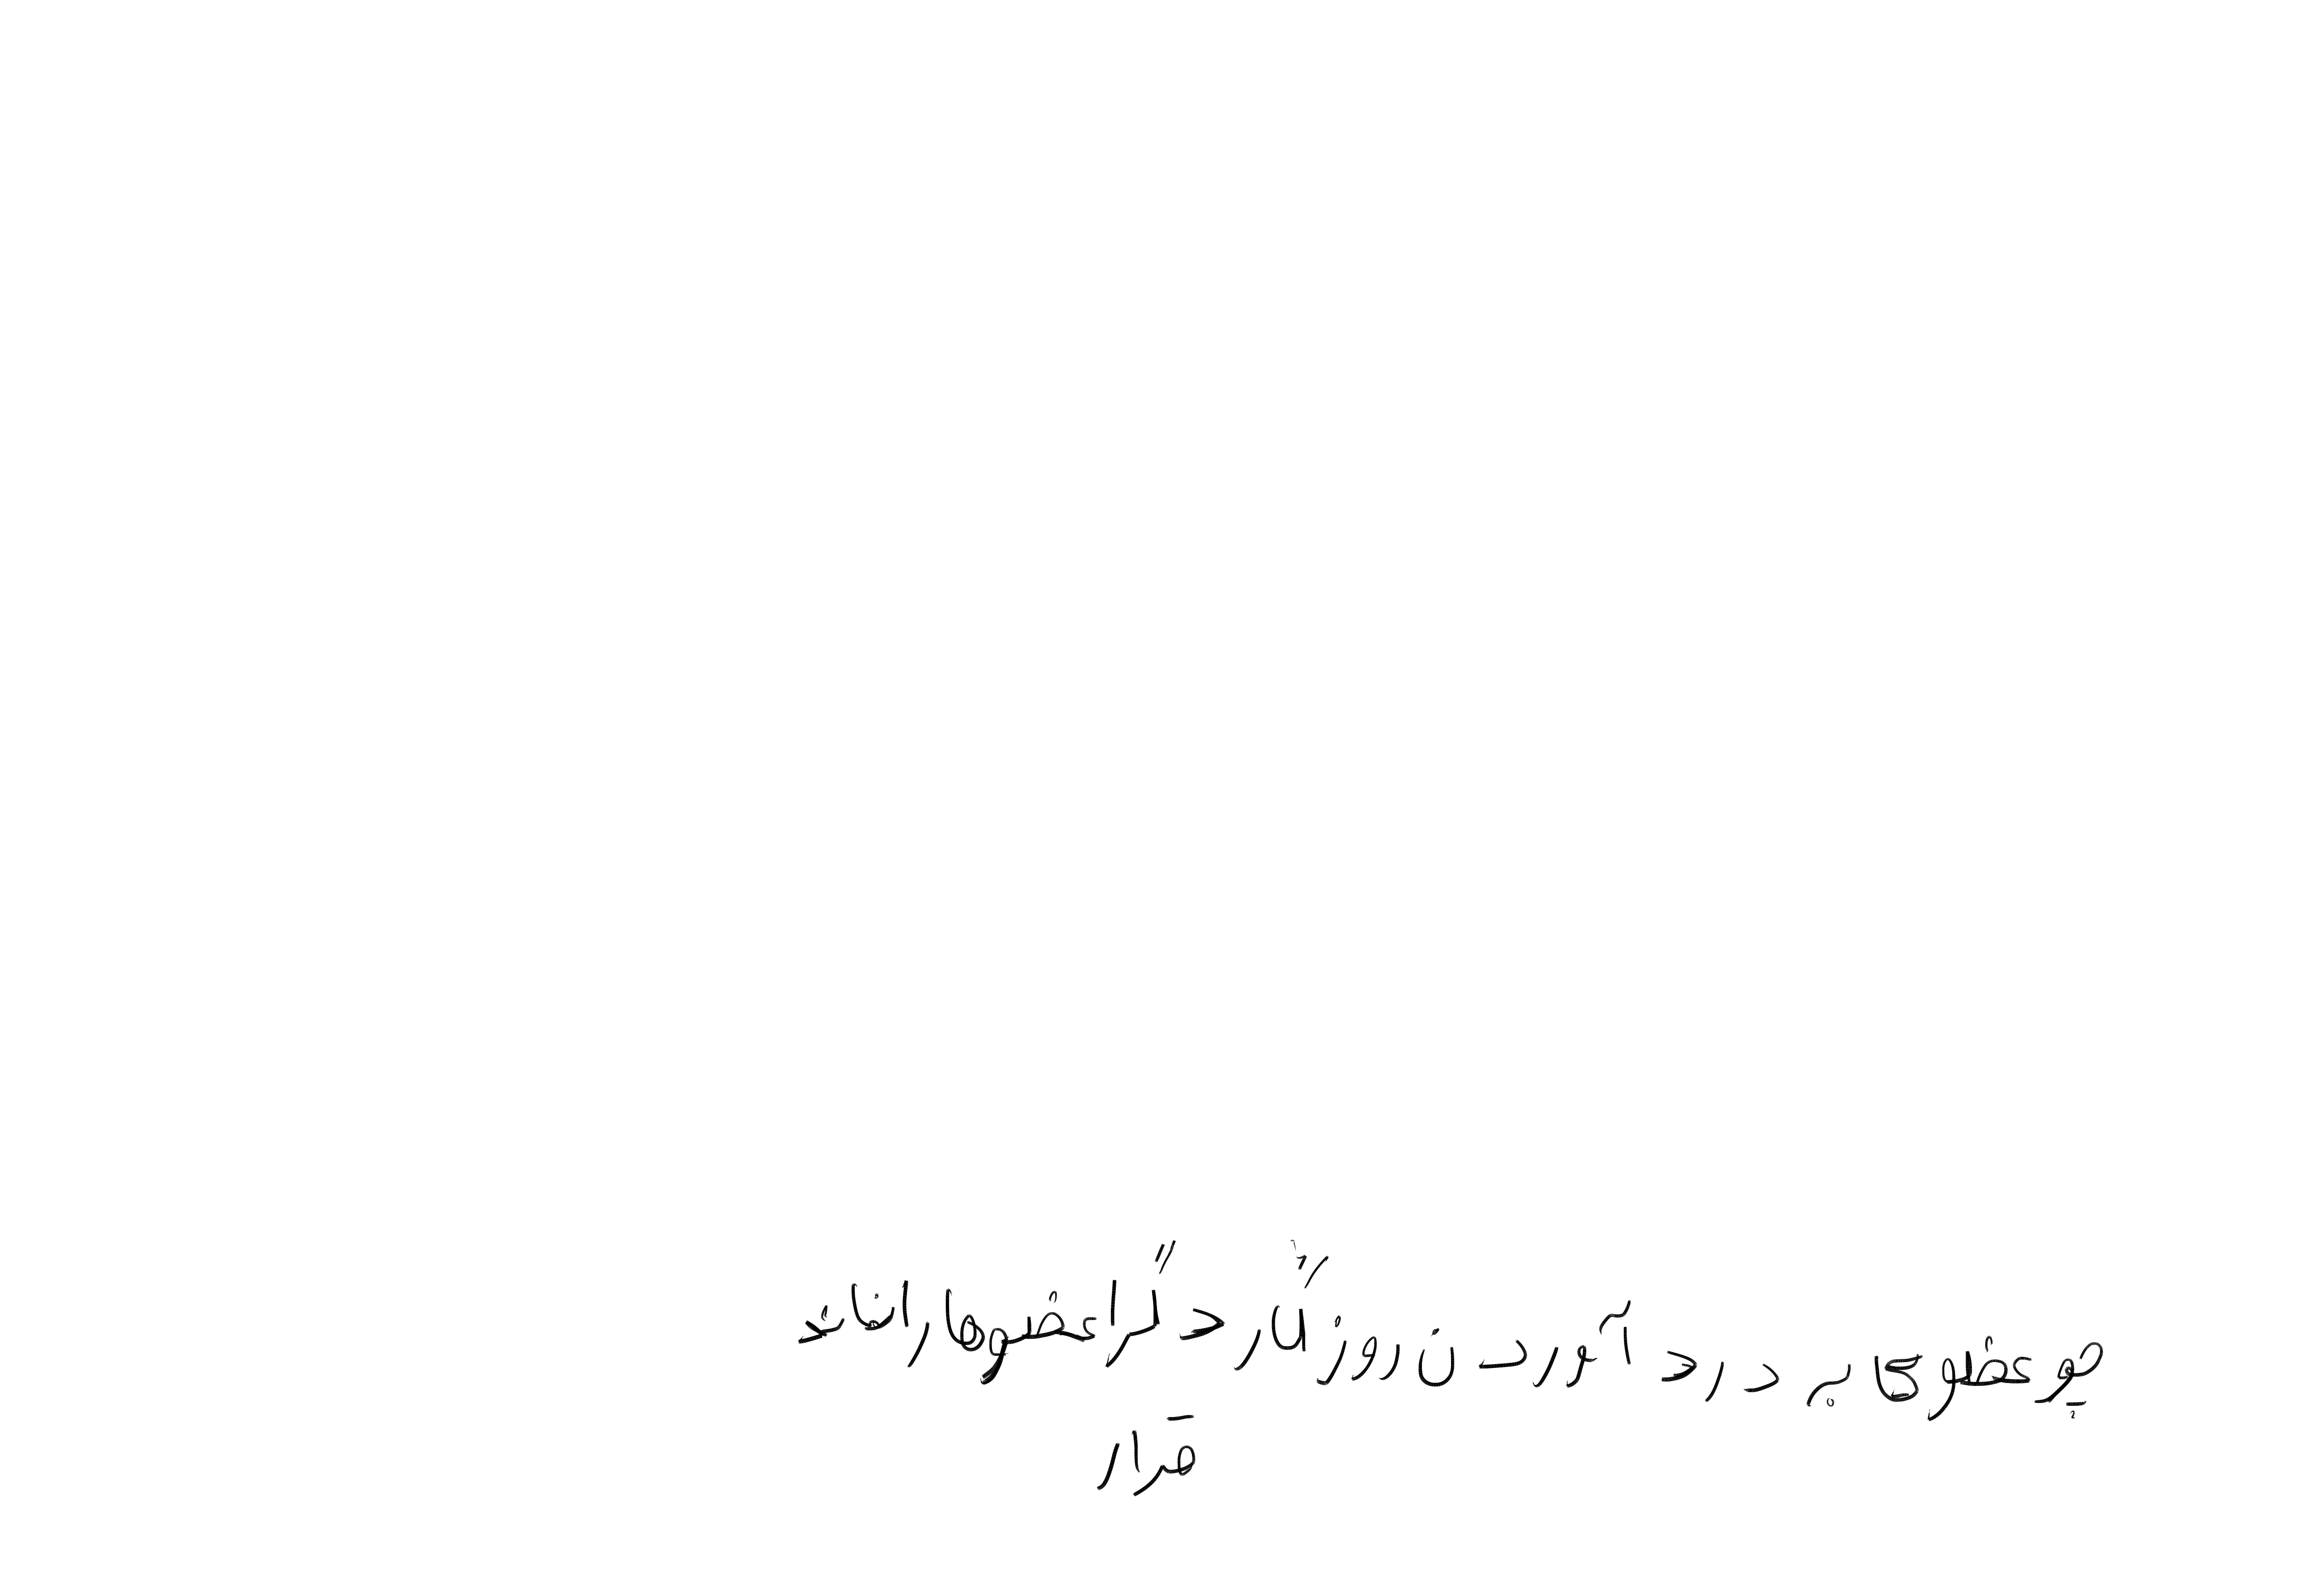 چو عضوی به درد آورد روزگار دگر عضوها را نماند
قرار